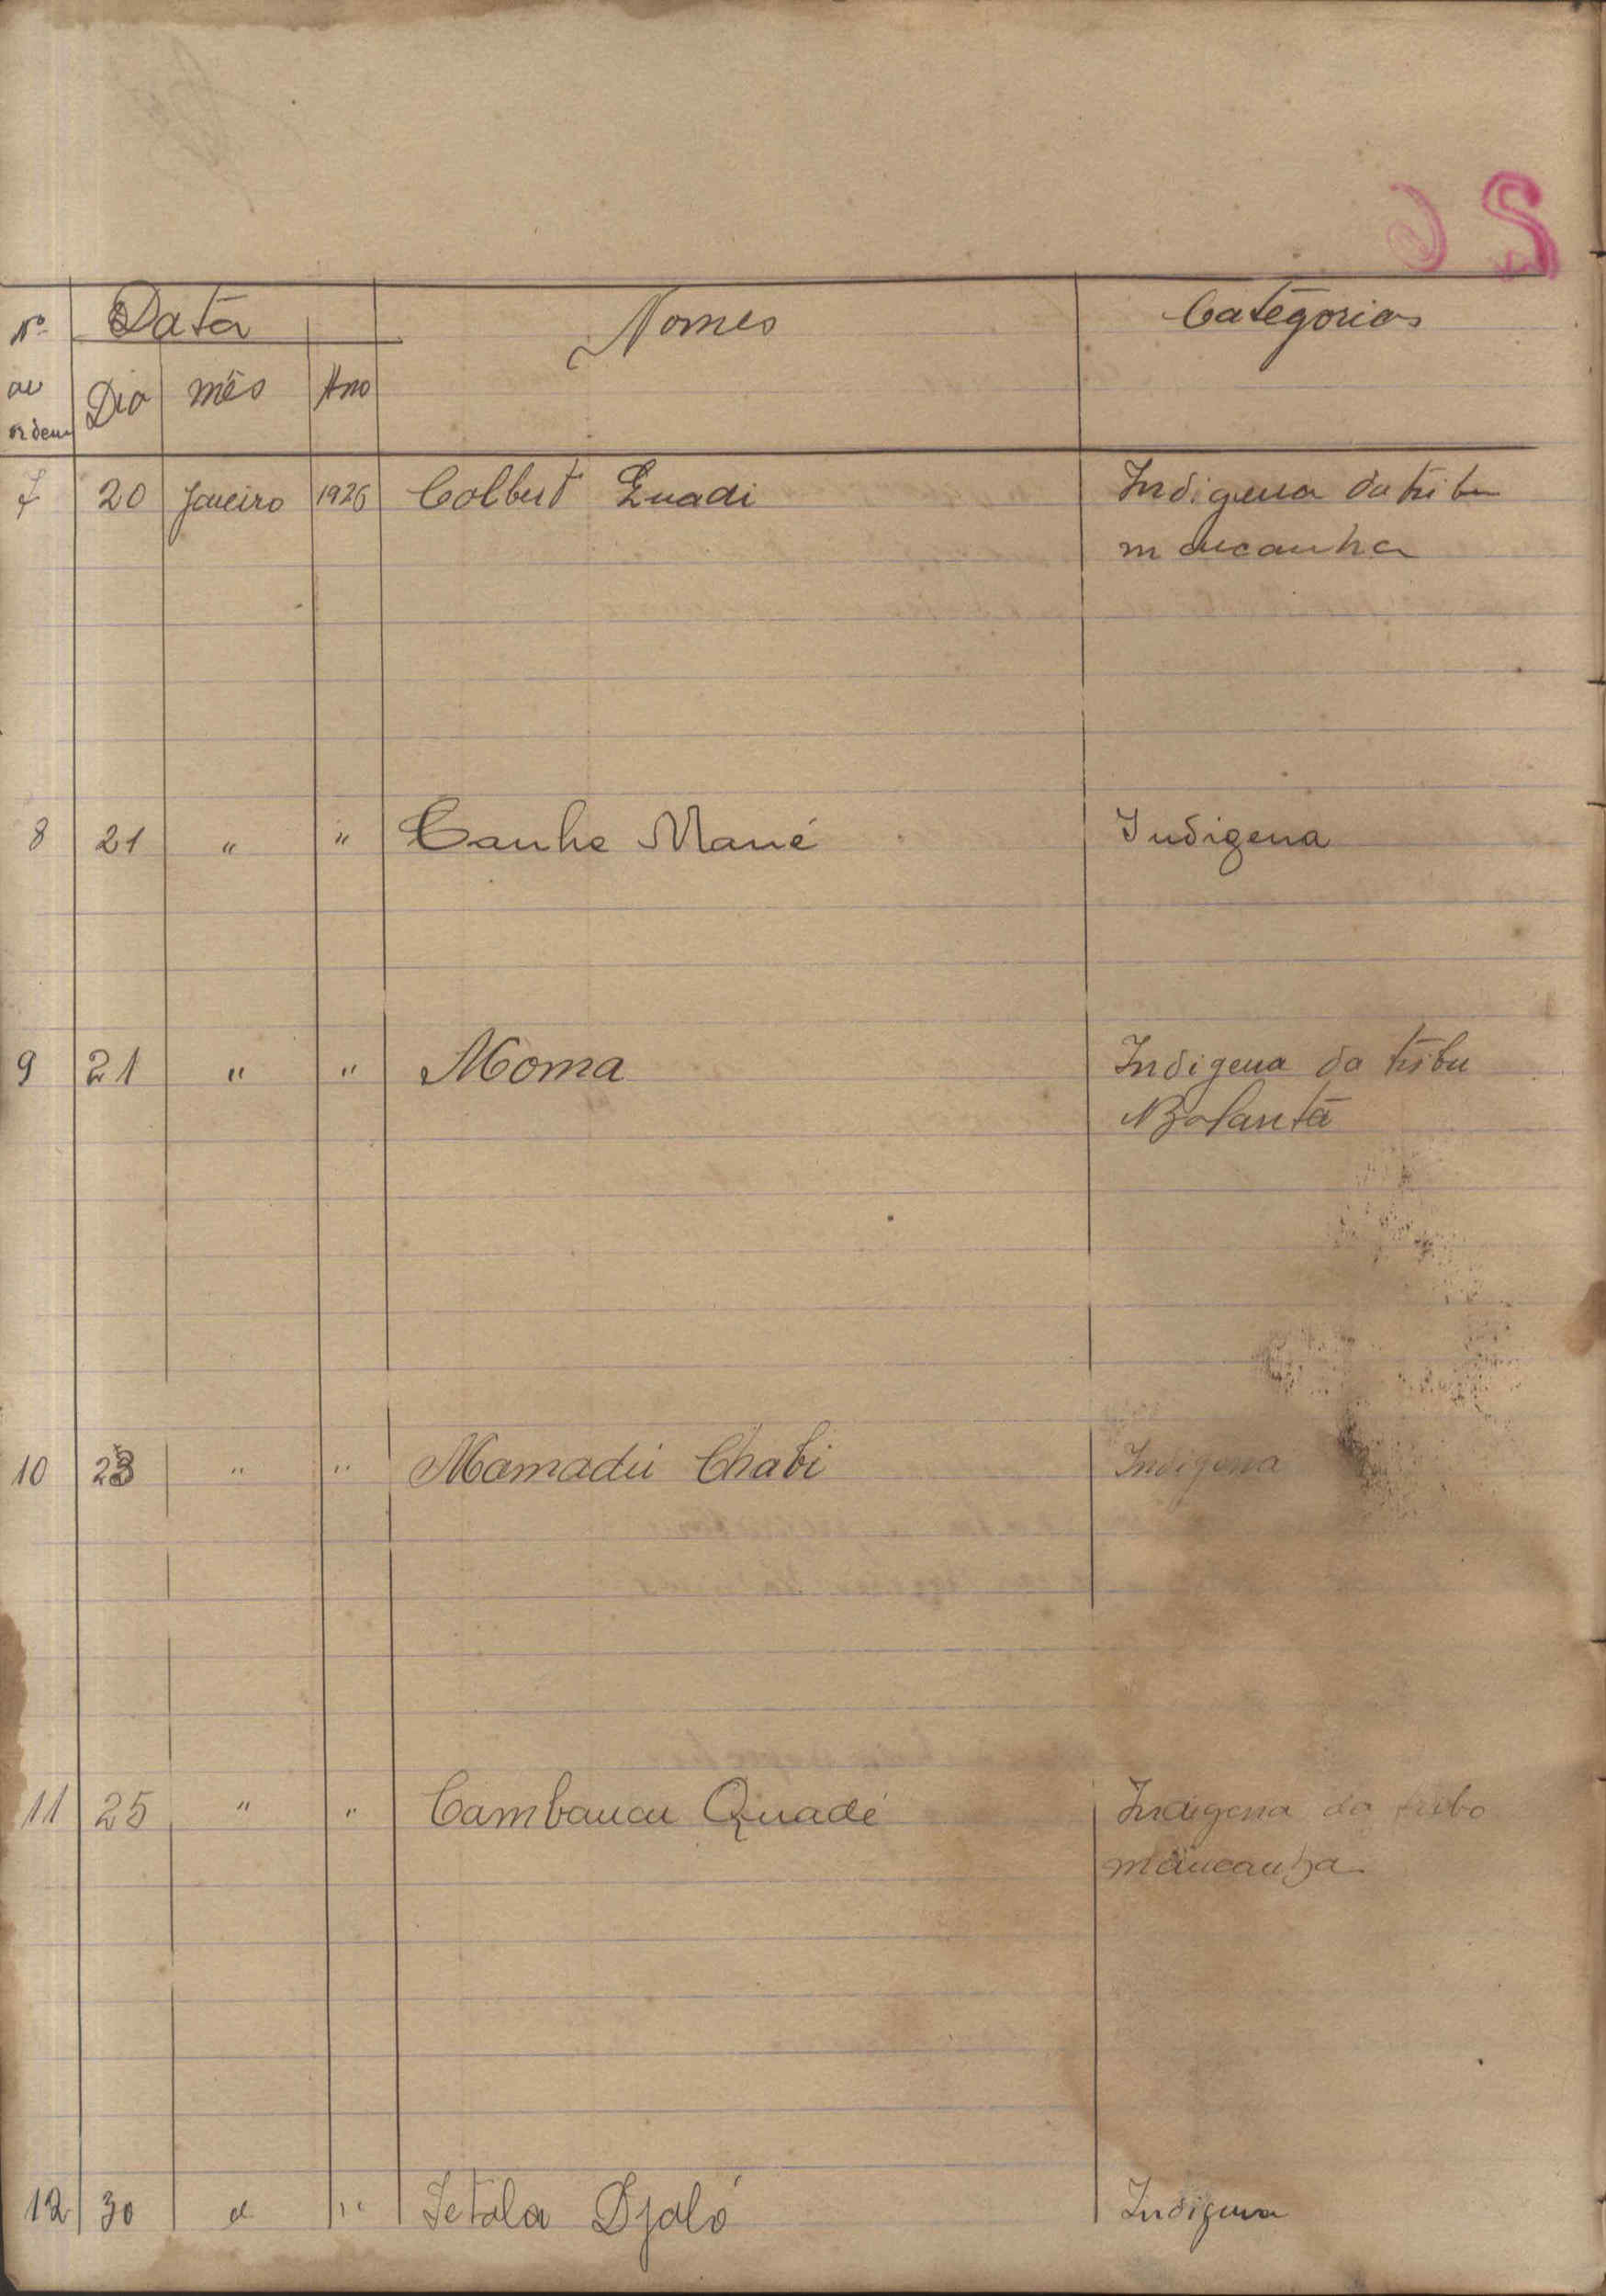 2
Nº Data Nomes Categorias
de Dia mês Ano
ordem
7 20 Janeiro 1926 Colbert Quadi Indigena da tribu
mancanha
8 21 " " Canhe Mané Indigena
9 21 " " Moma Indigena da tribu
Balanta
10 23 " " Mamadú Chabi Indigena
11 25 " " Cambancu Quadé Indigena da tribo
mancanha
12 30 " " Setala Djaló Indigena